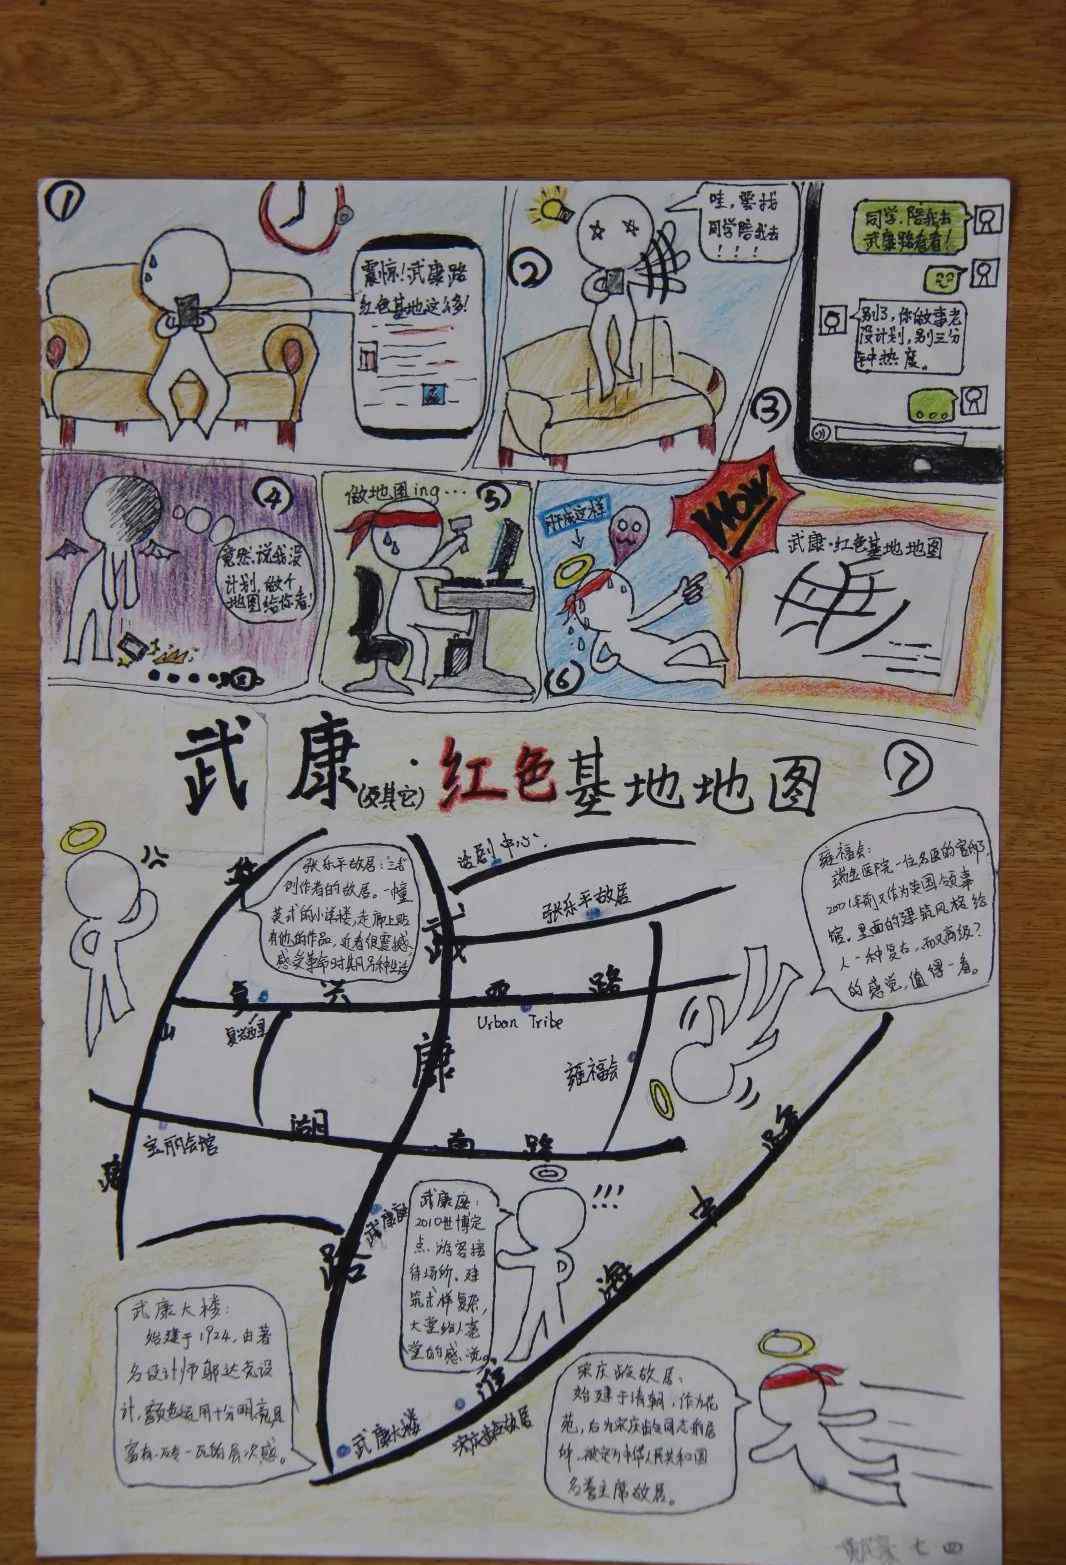 ①
震惊!武康路
红色基地这么多!
②
哇,要找
同学陪我去
!!!
③
同学,陪我去
武康路看看!
别了,你做事老
没计划,别三分
钟热度。
④
竟然说我没
计划,做个
地图给你看!
⑤
做地图ing...
⑥
WOW
武康·红色基地地图
⑦
武康(及其它)·红色基地地图
话剧中心
张乐平故居:三毛
创作者的故居。一幢
英式的小洋楼,走廊上贴
有他的作品,近看很震撼,
雍福会:
瑞金医院一位名医的宅邸,
2001年前又作为英国领事
馆。里面的建筑风格给
人一种复古,而又高级?
的感觉,值得一看。
张乐平故居
复兴西路
Urban Tribe
武康路
雍福会
湖南路
宝丽会馆
华山路
淮海中路
武康庭:
2010世博定
点游客接
待场所,建
筑式样复杂,
大堂给人宴
堂的感觉。
武康大楼:
始建于1924,由著
名设计师邬达克设
计,颜色运用十分明亮且
富有一砖一瓦的层次感。
武康大楼
宋庆龄故居
宋庆龄故居:
始建于清朝,作为花
苑,后为宋庆龄同志的居
所,被定为中华人民共和国
名誉主席故居。
七 四